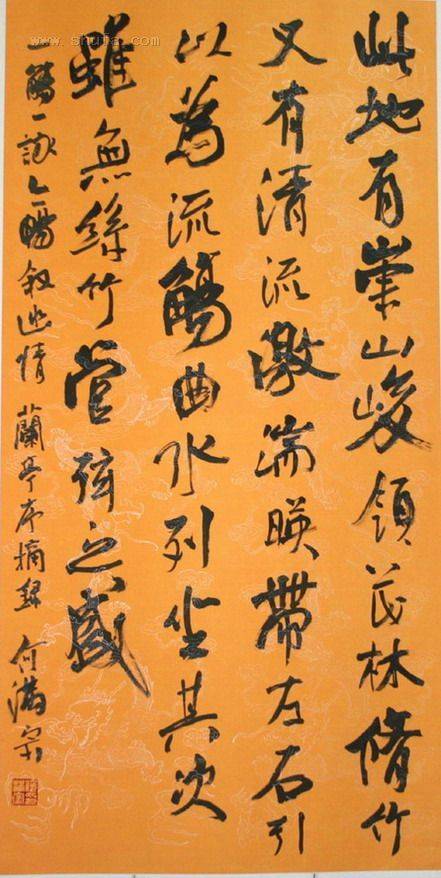 此地有崇山峻領茂林脩竹
又有清流激湍暎帶左右引
以為流觴曲水列坐其次
雖無絲竹管弦之盛
一觴一詠亦暢叙幽情 蘭亭序摘錄 何滿宗
shufa.com